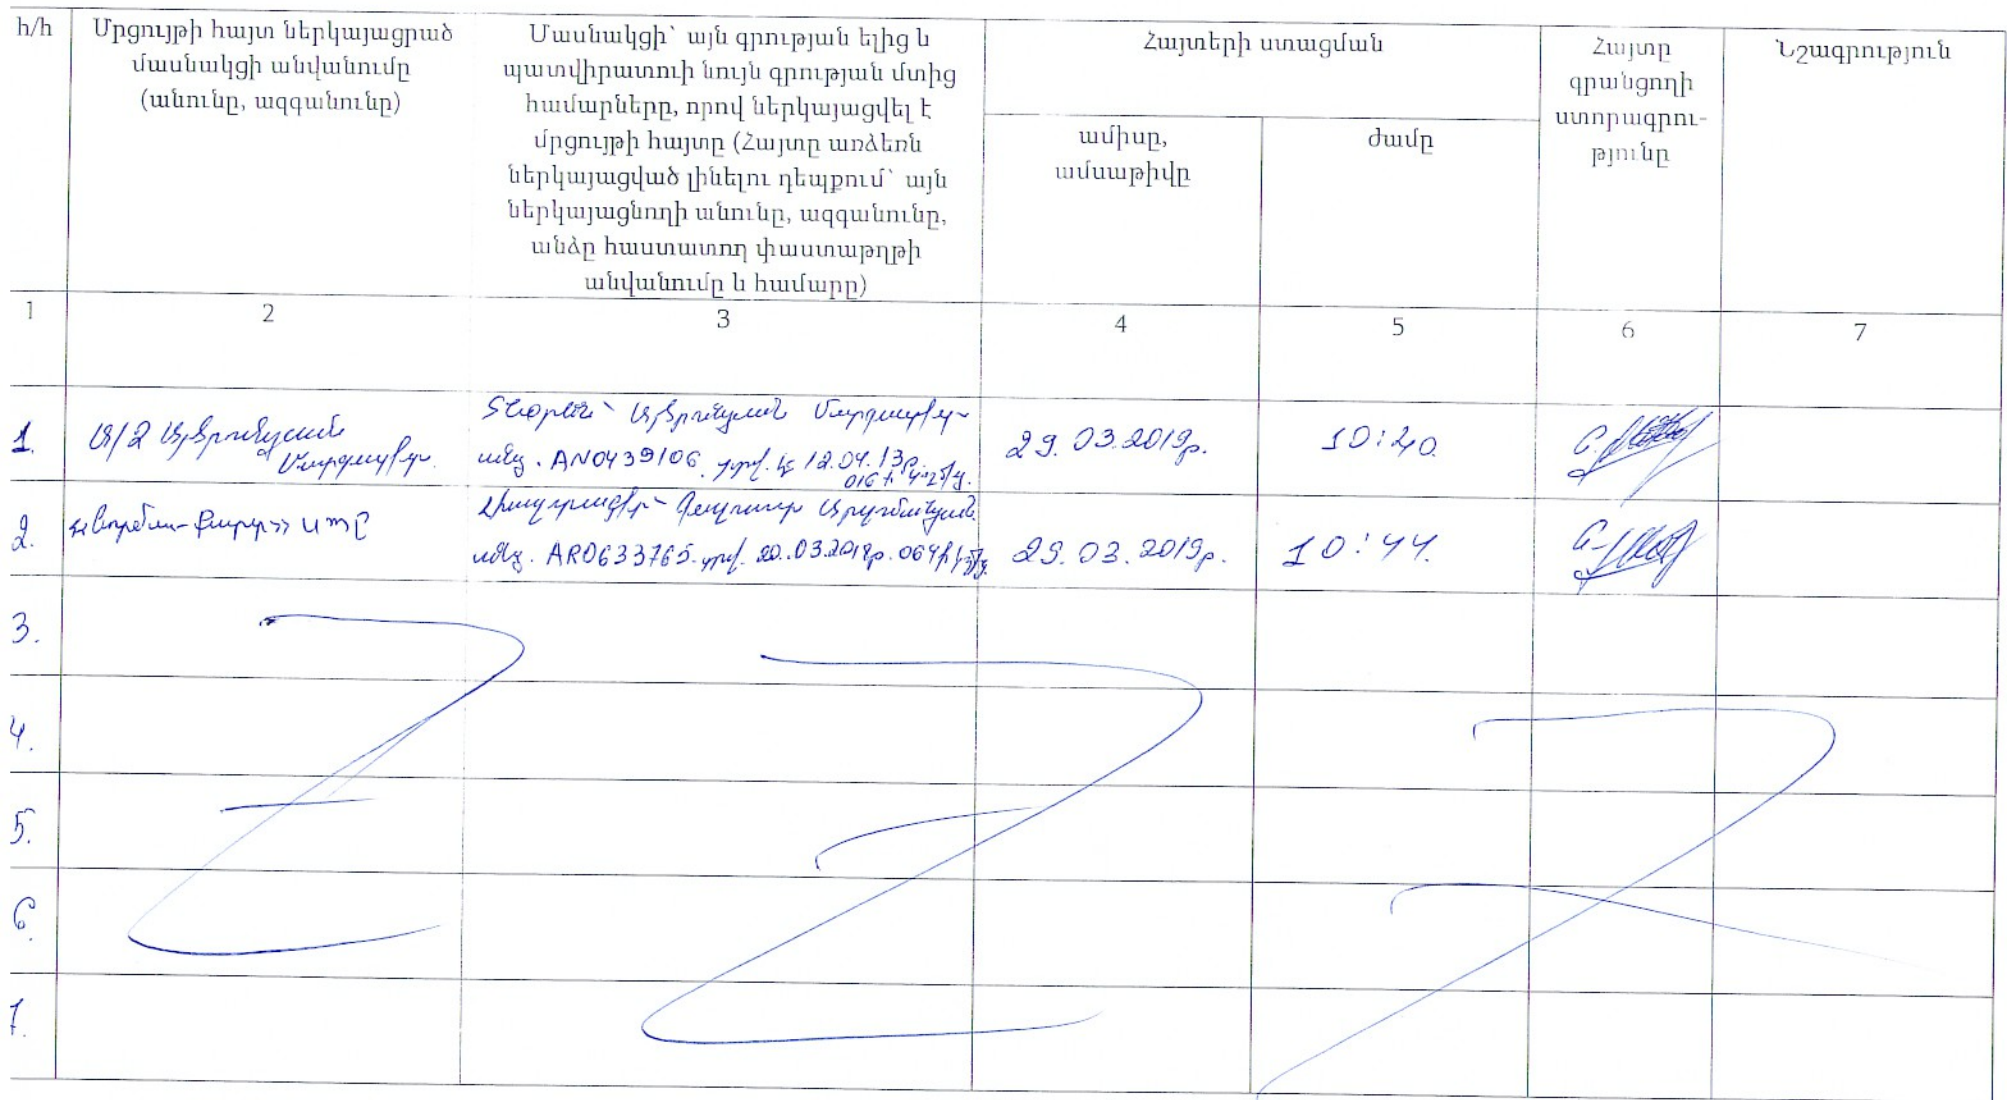 հ/հ
Մրցույթի հայտ ներկայացրած
մասնակցի անվանումը
(անունը, ազգանունը)
Մասնակցի` այն գրության ելից և
պատվիրատուի նույն գրության մտից
համարները, որով ներկայացվել է
մրցույթի հայտը (Հայտը առձեռն
ներկայացված լինելու դեպքում` այն
ներկայացնողի անունը, ազգանունը,
անձը հաստատող փաստաթղթի
անվանումը և համարը)
Հայտերի ստացման
ամիսը,
ամսաթիվը
ժամը
Հայտը
գրանցողի
ստորագրու-
թյունը
Նշագրություն
1 2 3 4 5 6 7
1. Ա/Ձ
Տնօրեն`
անձ. AN0439106 տրվ. է 12.04.13թ. 016
29.03.2019թ. 10:20
2. ՍՊԸ
անձ. AR0633765 տրվ. 20.03.2018թ. 064
29.03.2019թ. 10:44
3.
4.
5.
6.
7.